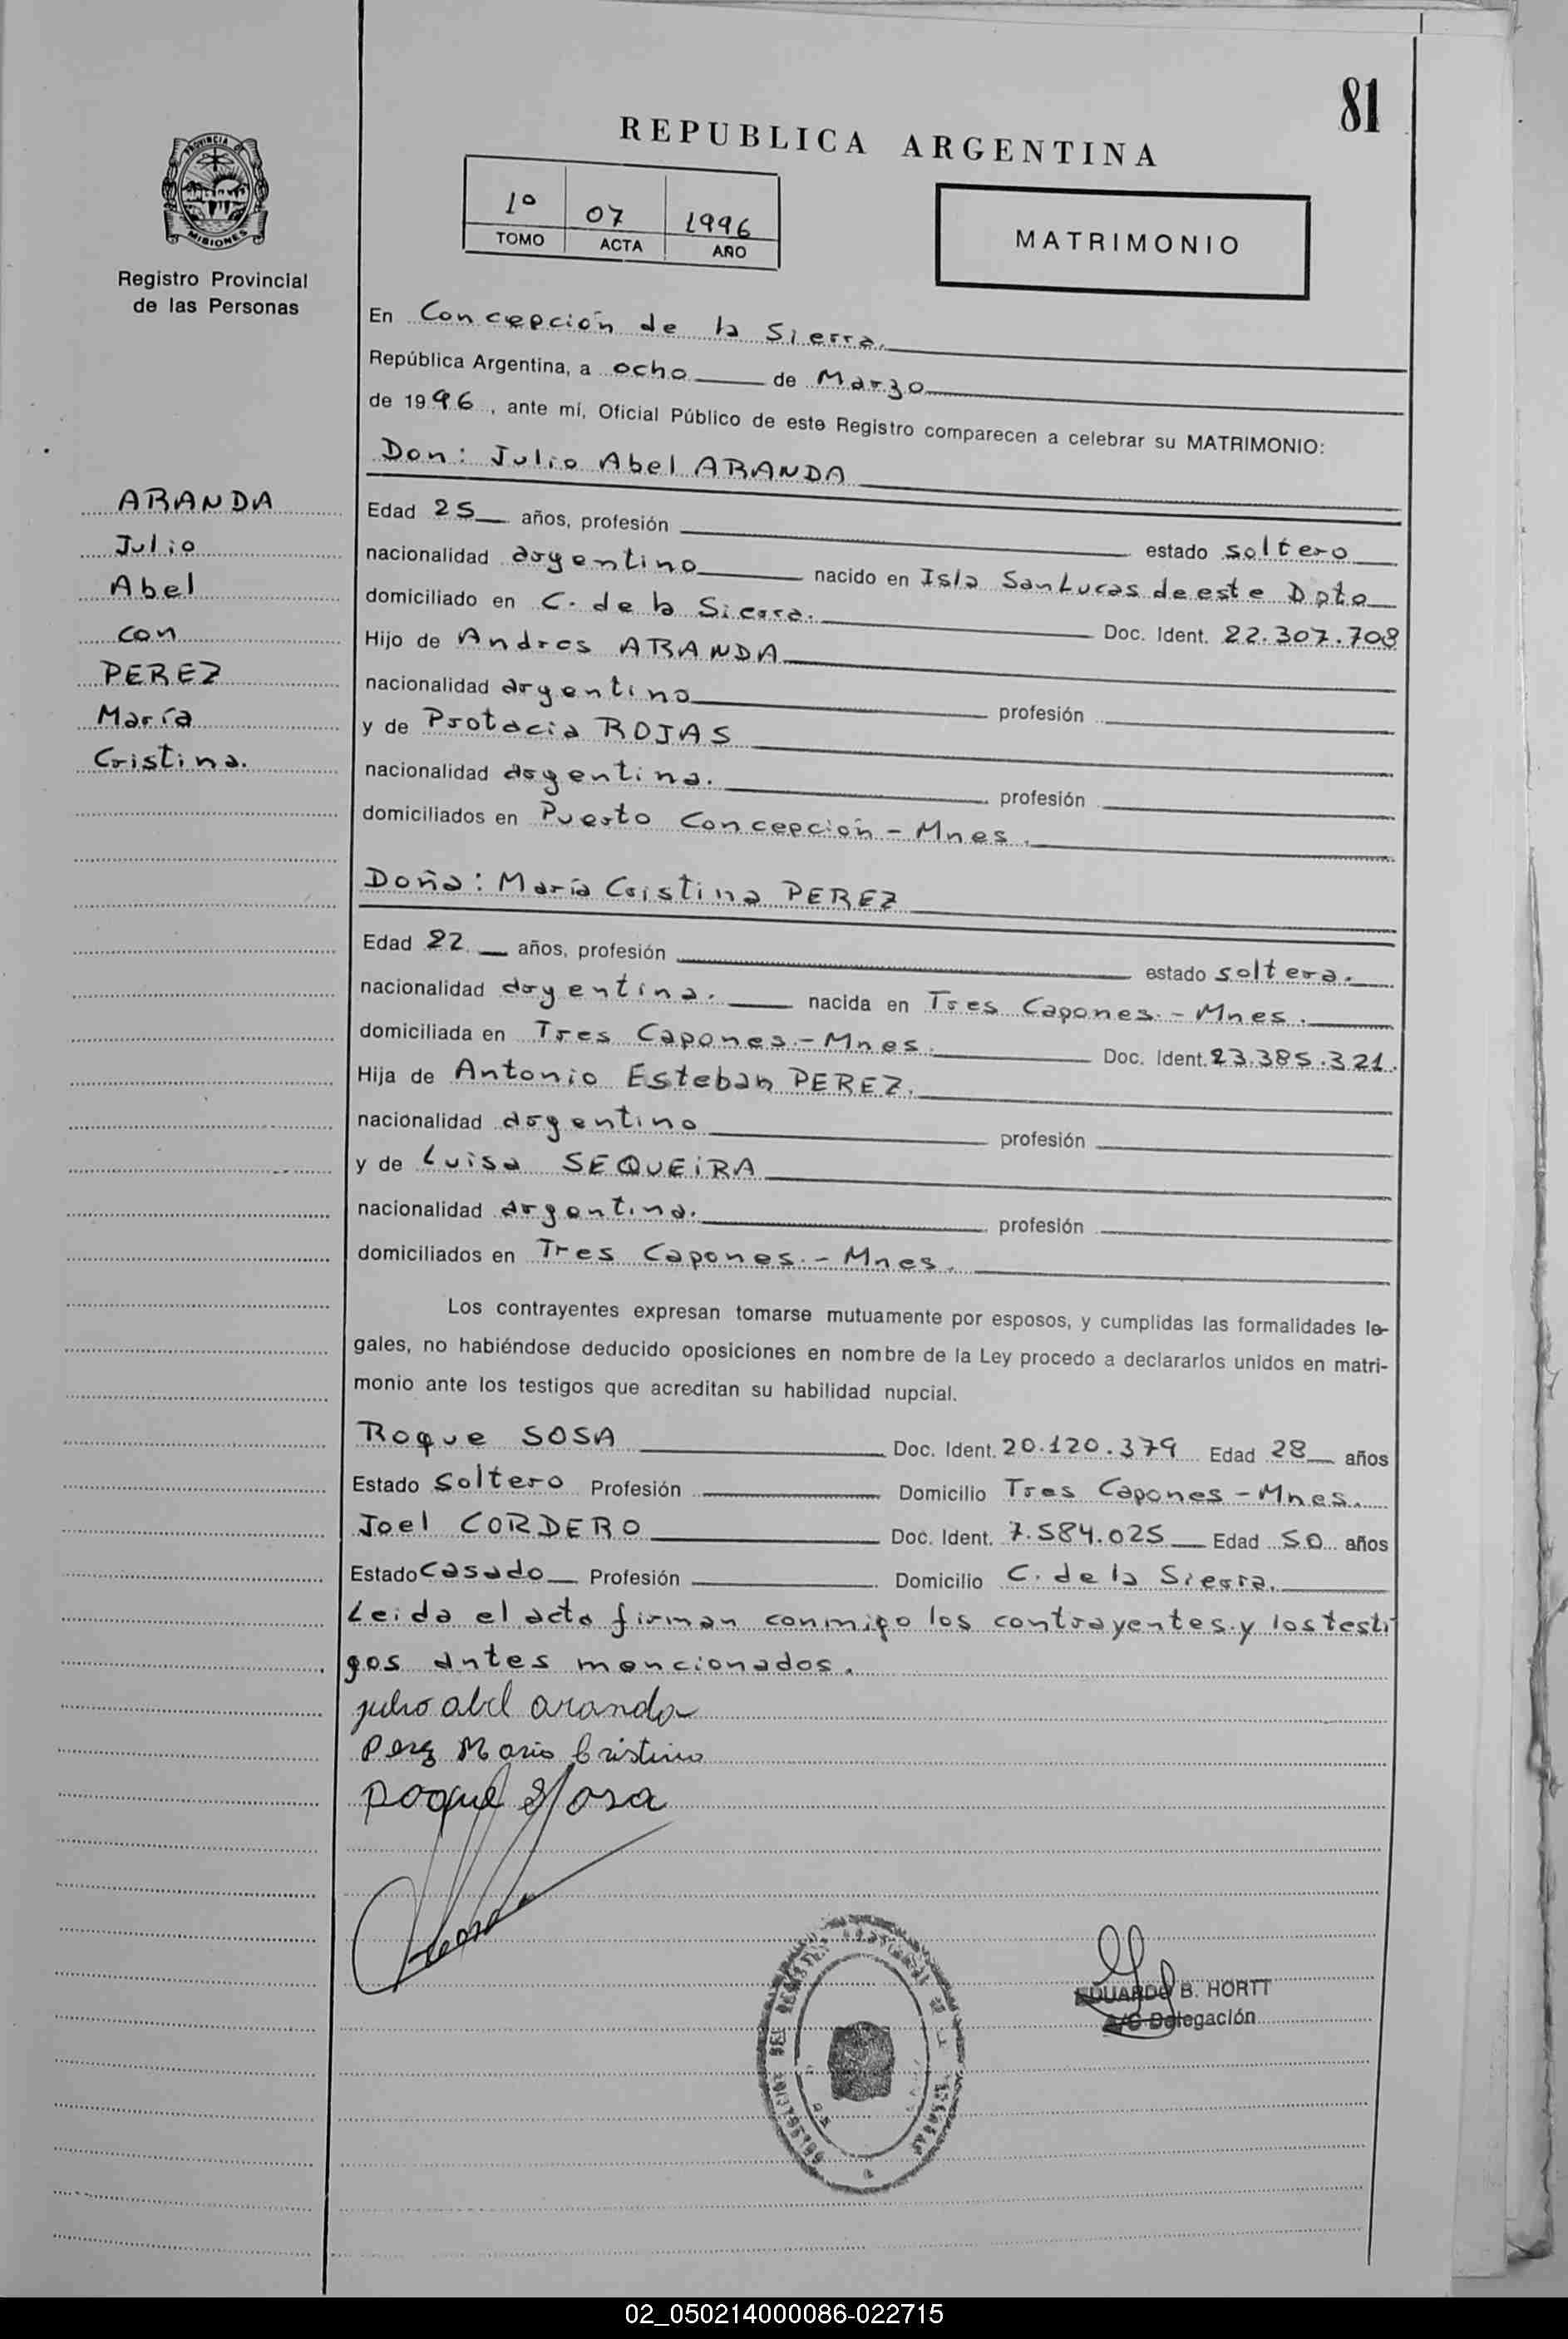 81
REPUBLICA ARGENTINA
PROVINCIA DE
MISIONES
Registro Provincial
de las Personas
1º 07 1996
TOMO ACTA AÑO
MATRIMONIO
En Concepción de la Sierra.
República Argentina, a ocho de Marzo
de 1996, ante mí, Oficial Público de este Registro comparecen a celebrar su MATRIMONIO:
Don: Julio Abel ARANDA
ARANDA
Julio
Abel
con
PEREZ
María
Cristina.
Edad 25 años, profesión estado soltero
nacionalidad argentino nacido en Isla San Lucas de este Dpto
domiciliado en C. de la Sierra. Doc. Ident. 22.307.708
Hijo de Andres ARANDA
nacionalidad argentino profesión
y de Protacia ROJAS
nacionalidad argentina. profesión
domiciliados en Puerto Concepción - Mnes.
Doña: María Cristina PEREZ
Edad 22 años, profesión estado soltera.
nacionalidad argentina. nacida en Tres Capones.- Mnes.
domiciliada en Tres Capones.- Mnes. Doc. Ident. 23.385.321.
Hija de Antonio Esteban PEREZ.
nacionalidad argentino profesión
y de Luisa SEQUEIRA
nacionalidad argentina. profesión
domiciliados en Tres Capones.- Mnes.
Los contrayentes expresan tomarse mutuamente por esposos, y cumplidas las formalidades le-
gales, no habiéndose deducido oposiciones en nombre de la Ley procedo a declararlos unidos en matri-
monio ante los testigos que acreditan su habilidad nupcial.
Roque SOSA Doc. Ident. 20.120.379 Edad 28 años
Estado soltero Profesión Domicilio Tres Capones - Mnes.
Joel CORDERO Doc. Ident. 7.584.025 Edad 50 años
Estado casado Profesión Domicilio C. de la Sierra.
Leida el acta firman conmigo los contrayentes y los testi
gos antes mencionados.
julio abel aranda
Perez Maria Cristina
Roque Sosa
EDUARDO B. HORTT
A/C Delegación
02_050214000086-022715